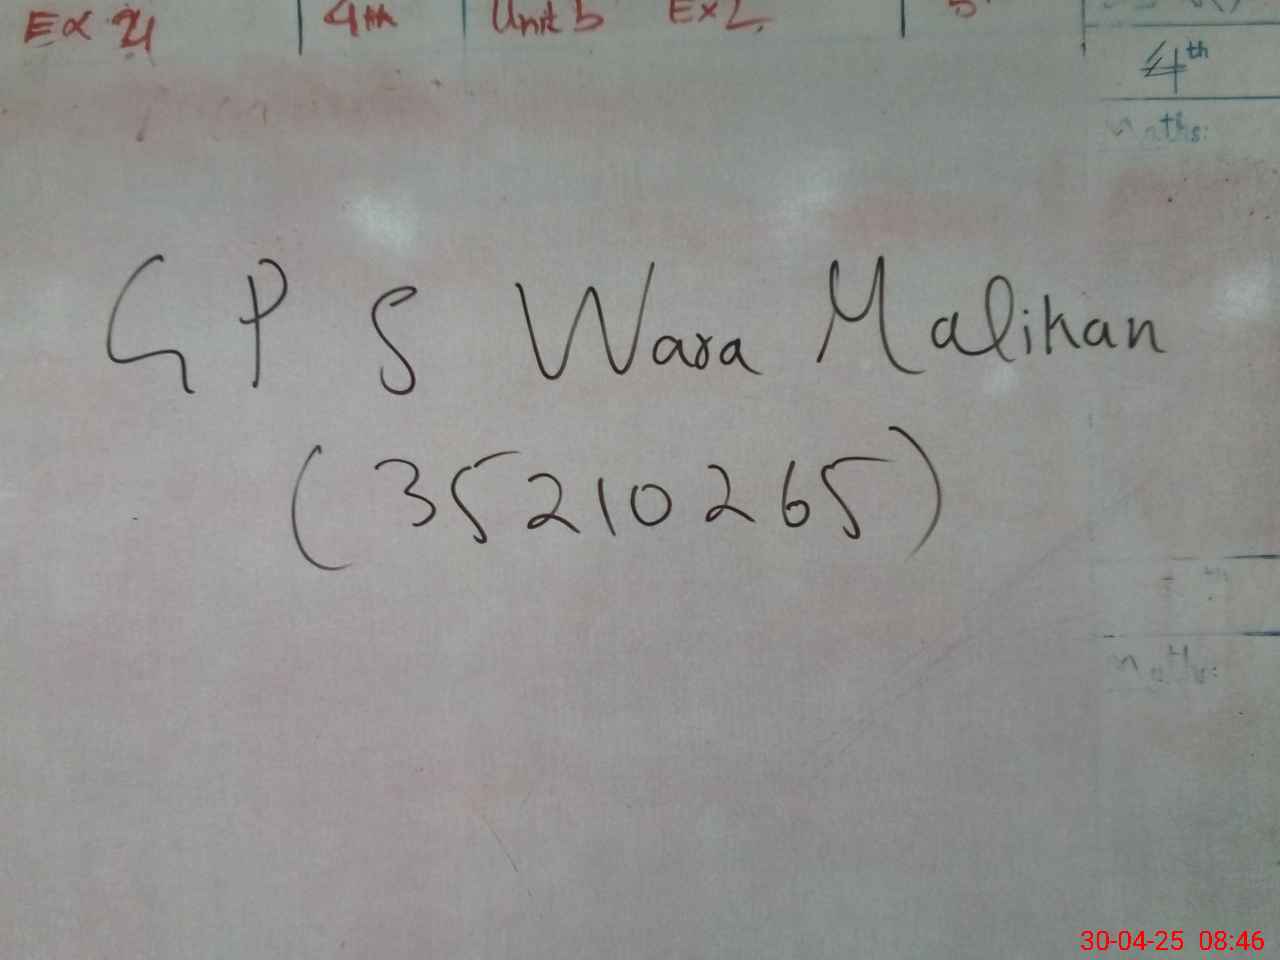 Ex 21 4th Unit 5 Ex 2 5
4th
Maths:
G P S Wara Malikan
(35210265)
Maths:
30-04-25 08:46